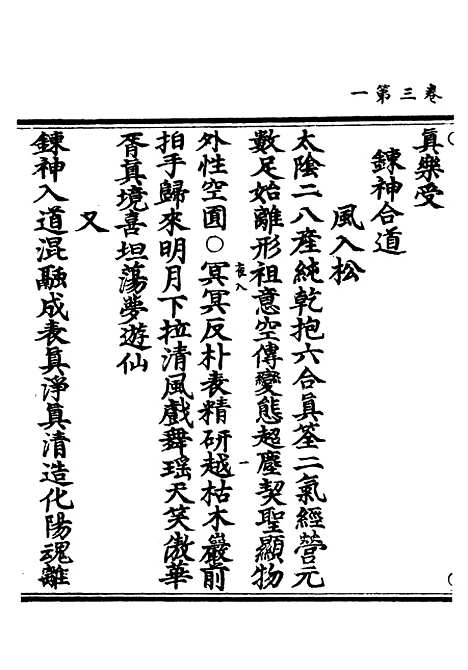 卷三第一
真樂受
鍊神合道
風入松
太陰二八產純乾抱六合真筌二氣經營元
數足始離形祖意空傳變態超塵契聖顯物
外性空圓○冥冥反朴表精研越枯木巖前
拍手歸來明月下拉清風戲舞瑶天笑傲華
胥真境喜坦蕩夢遊仙
又
鍊神入道混融成表真淨真清造化陽魂離